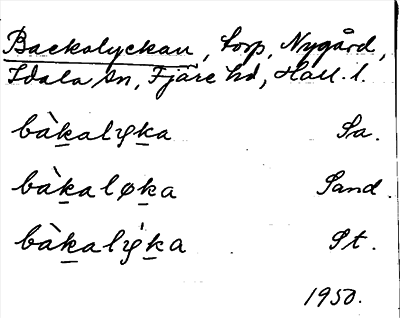 Backalyckan, torp, Nygård,
Idala sn, Fjäre hd, Hall. l.
bàk̠alyk̠a Sa.
bàk̠aløk̠a Sand.
bàk̠alýk̠a St.
1950.